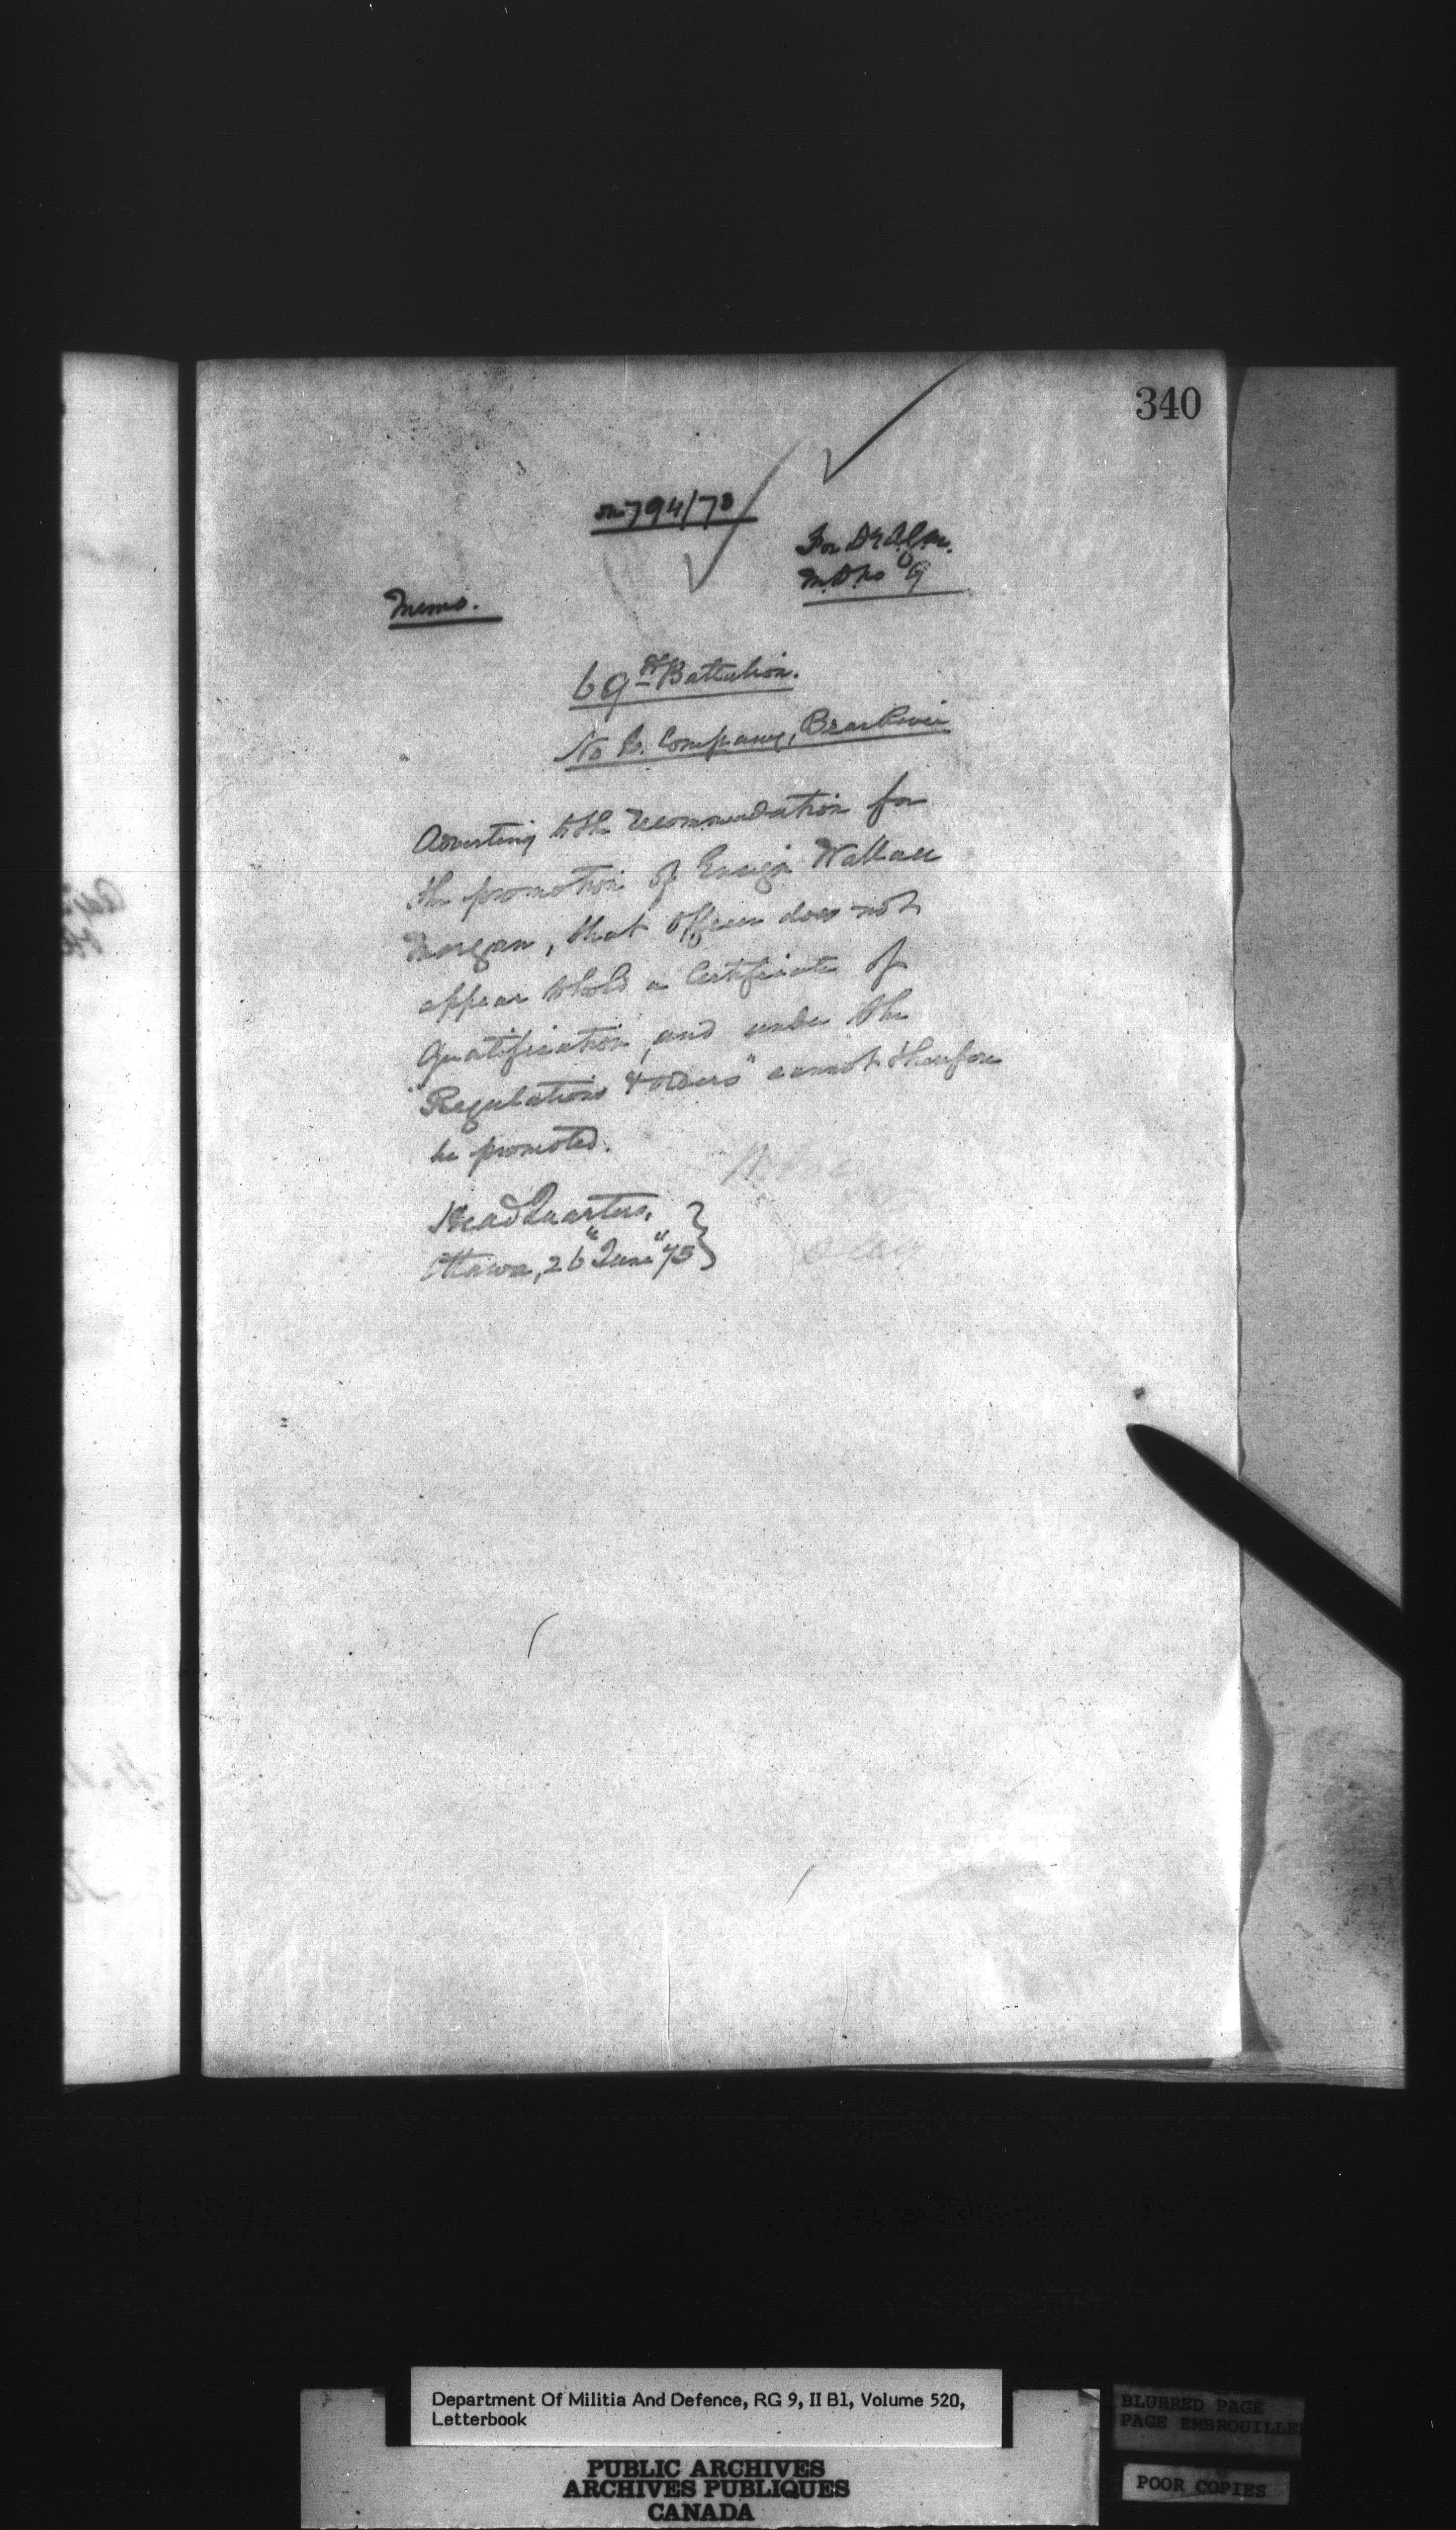 340
on 794/73
For D.A.G.M.
M.D. No 9
Memo.
69th Battalion.
No 6. Company, Bear River
Adverting to the recommendation for
the promotion of Ensign Wallace
Morgan, that Officer does not
appear to hold a Certificate of
Qualification, and under the
"Regulations & Orders" cannot therefore
be promoted.
Head Quarters,
Ottawa, 26" June "73
Department Of Militia And Defence, RG 9, II B1, Volume 520,
Letterbook
PUBLIC ARCHIVES
ARCHIVES PUBLIQUES
CANADA
BLURRED PAGE
PAGE EMBROUILLE
POOR COPIES